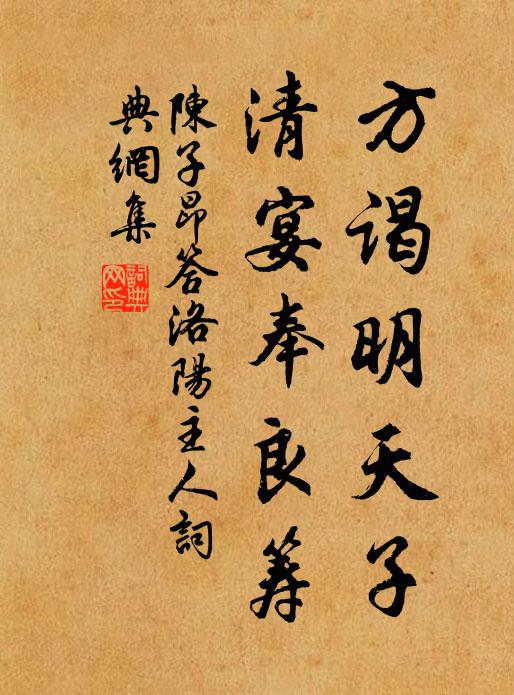 方谒明天子
清宴奉良筹
陳子昂答洛陽主人詞
典網集
詞典网印